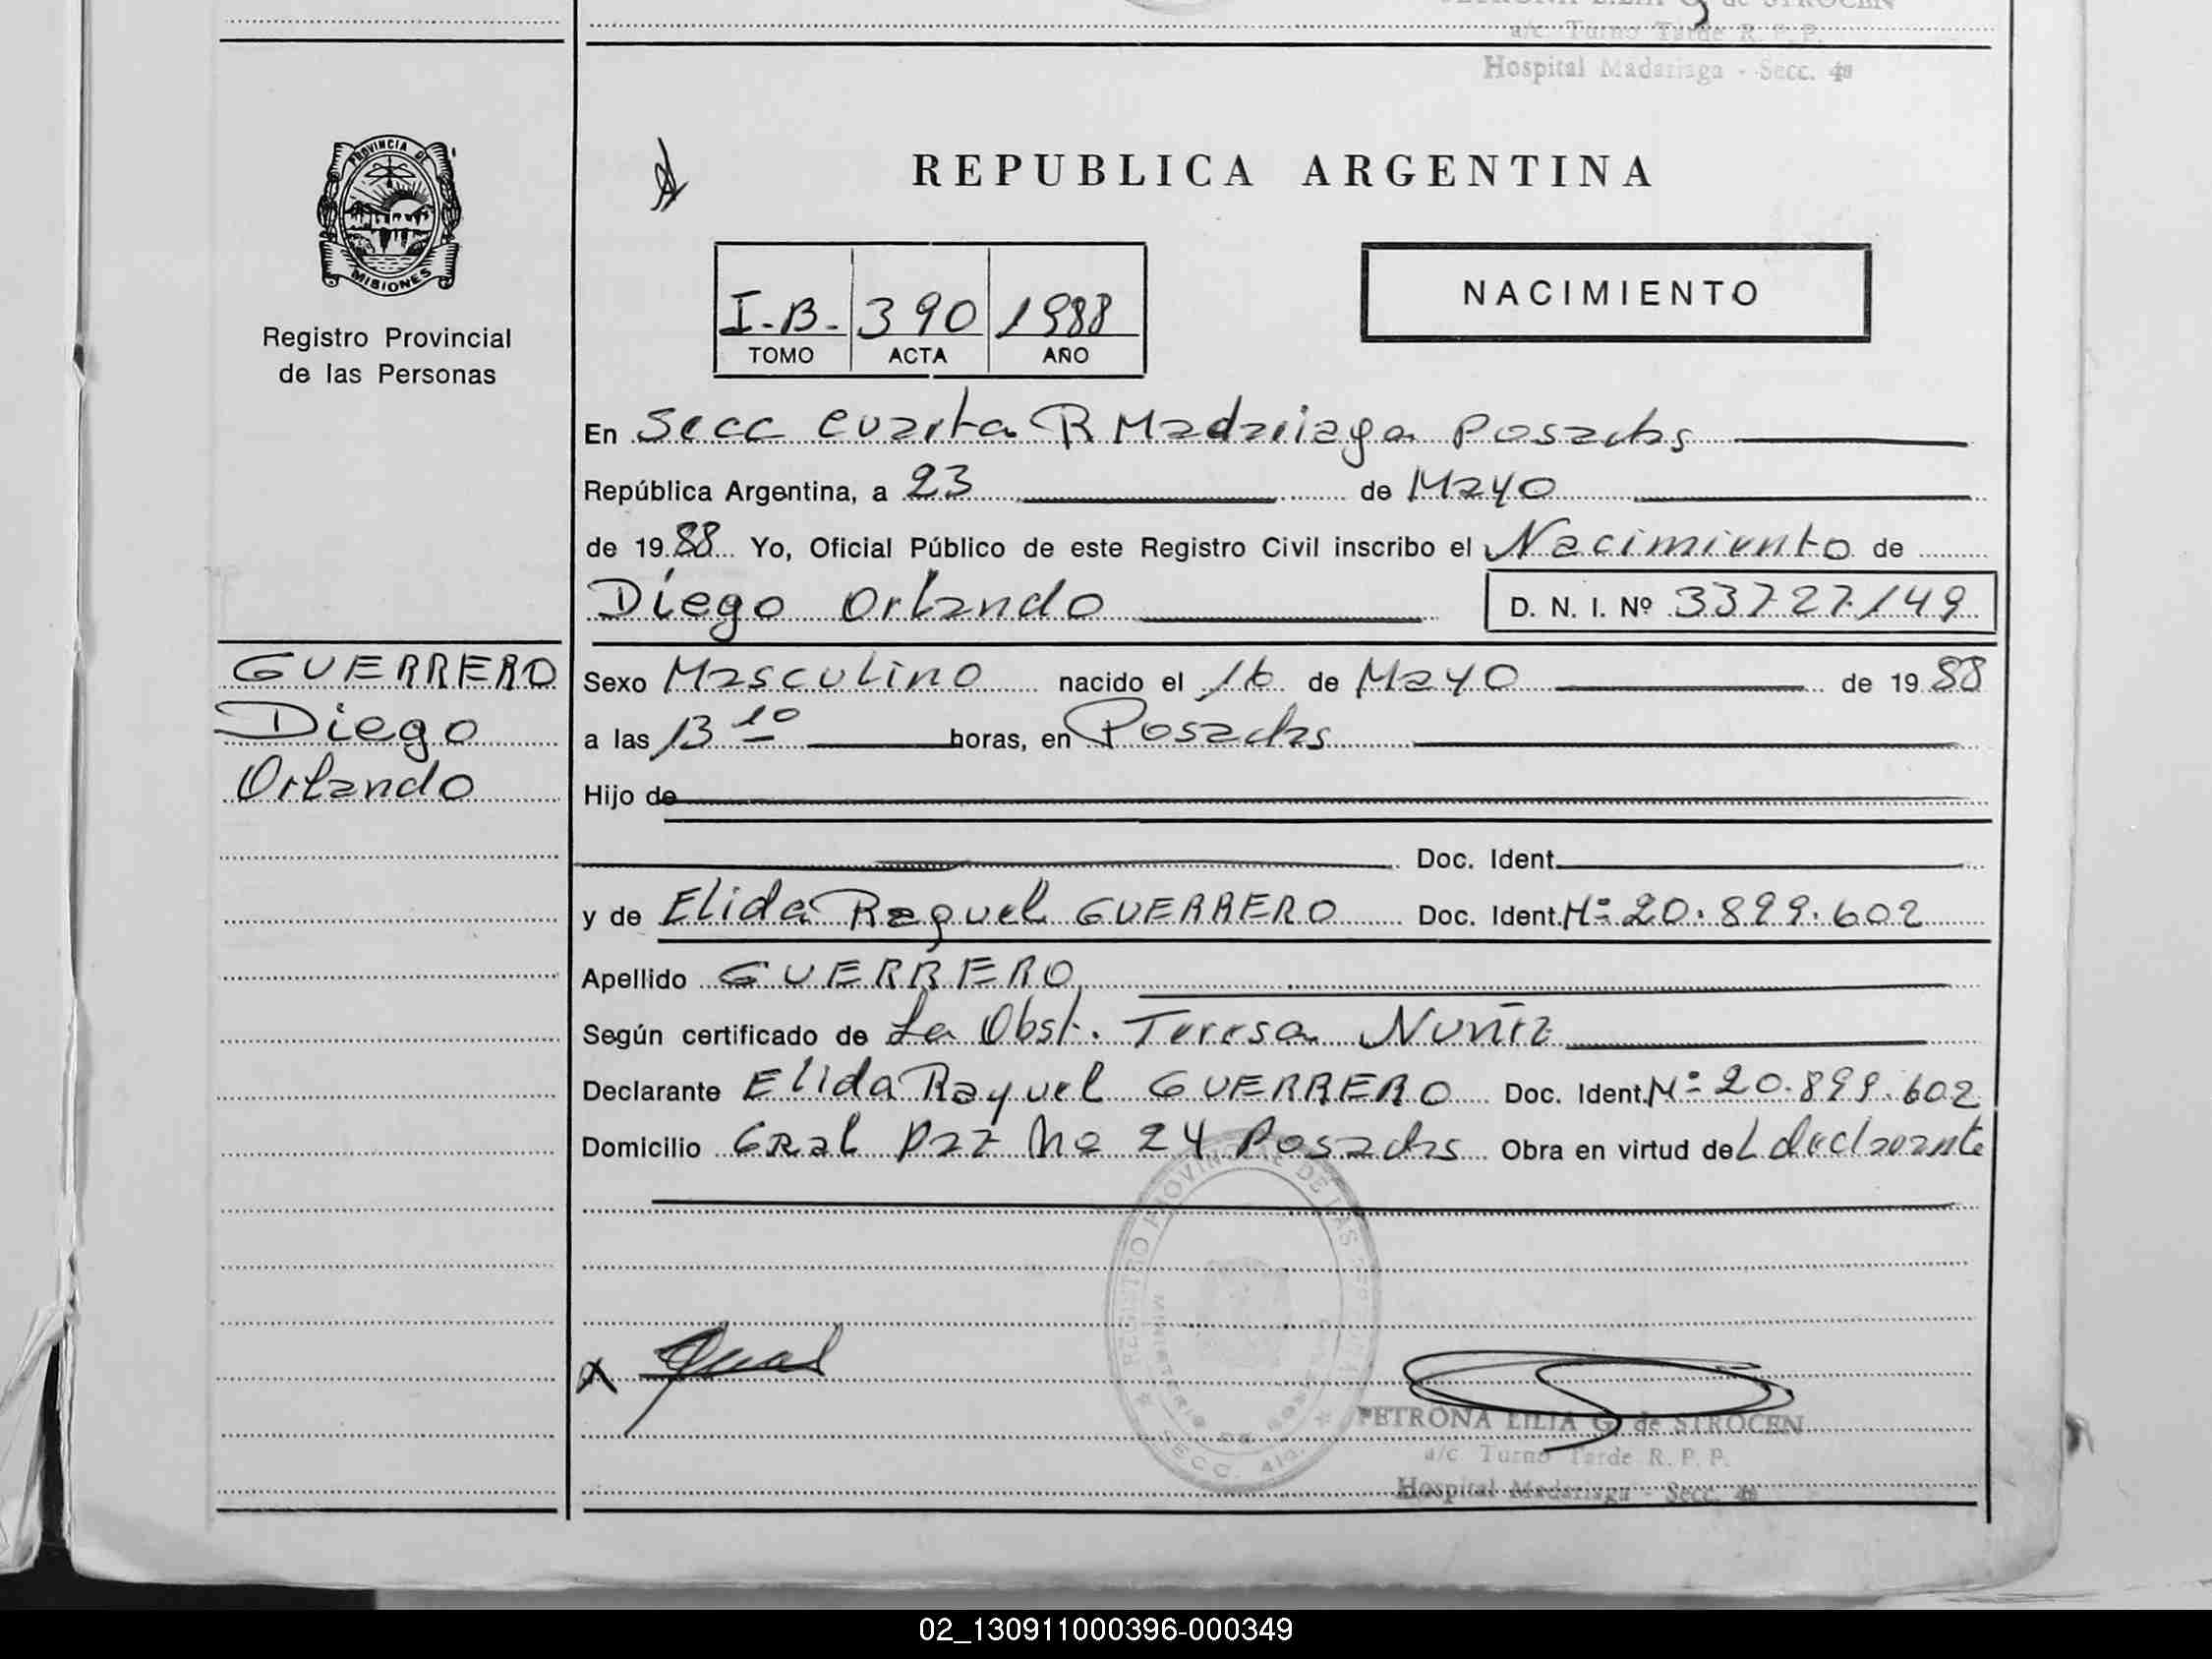 a/c Turno Tarde R. P. P.
Hospital Madariaga - Secc. 4a
PROVINCIA DE
MISIONES
Registro Provincial
de las Personas
REPUBLICA ARGENTINA
I-B- 390 1988
TOMO ACTA AÑO
NACIMIENTO
En Secc cuarta R Madariaga Posadas
República Argentina, a 23 de Mayo
de 1988 Yo, Oficial Público de este Registro Civil inscribo el Nacimiento de
Diego Orlando D. N. I. Nº 33727149
GUERRERO
Diego
Orlando
Sexo Masculino nacido el 16 de Mayo de 1988
a las 13 10 horas, en Posadas
Hijo de
Doc. Ident.
y de Elida Raquel GUERRERO Doc. Ident. Nº 20.899.602
Apellido GUERRERO
Según certificado de La Obst. Teresa Nuñez
Declarante Elida Raquel GUERRERO Doc. Ident. Nº 20.899.602
Domicilio Gral Paz Nº 24 Posadas Obra en virtud del declarante
REGISTRO PROVINCIAL DE LAS PERSONAS
MINISTERIO DE GOBIERNO
SECC. 4ta.
PETRONA LILIA G. de STROCEN
a/c Turno Tarde R. P. P.
Hospital Madariaga - Secc. 4a
02_130911000396-000349